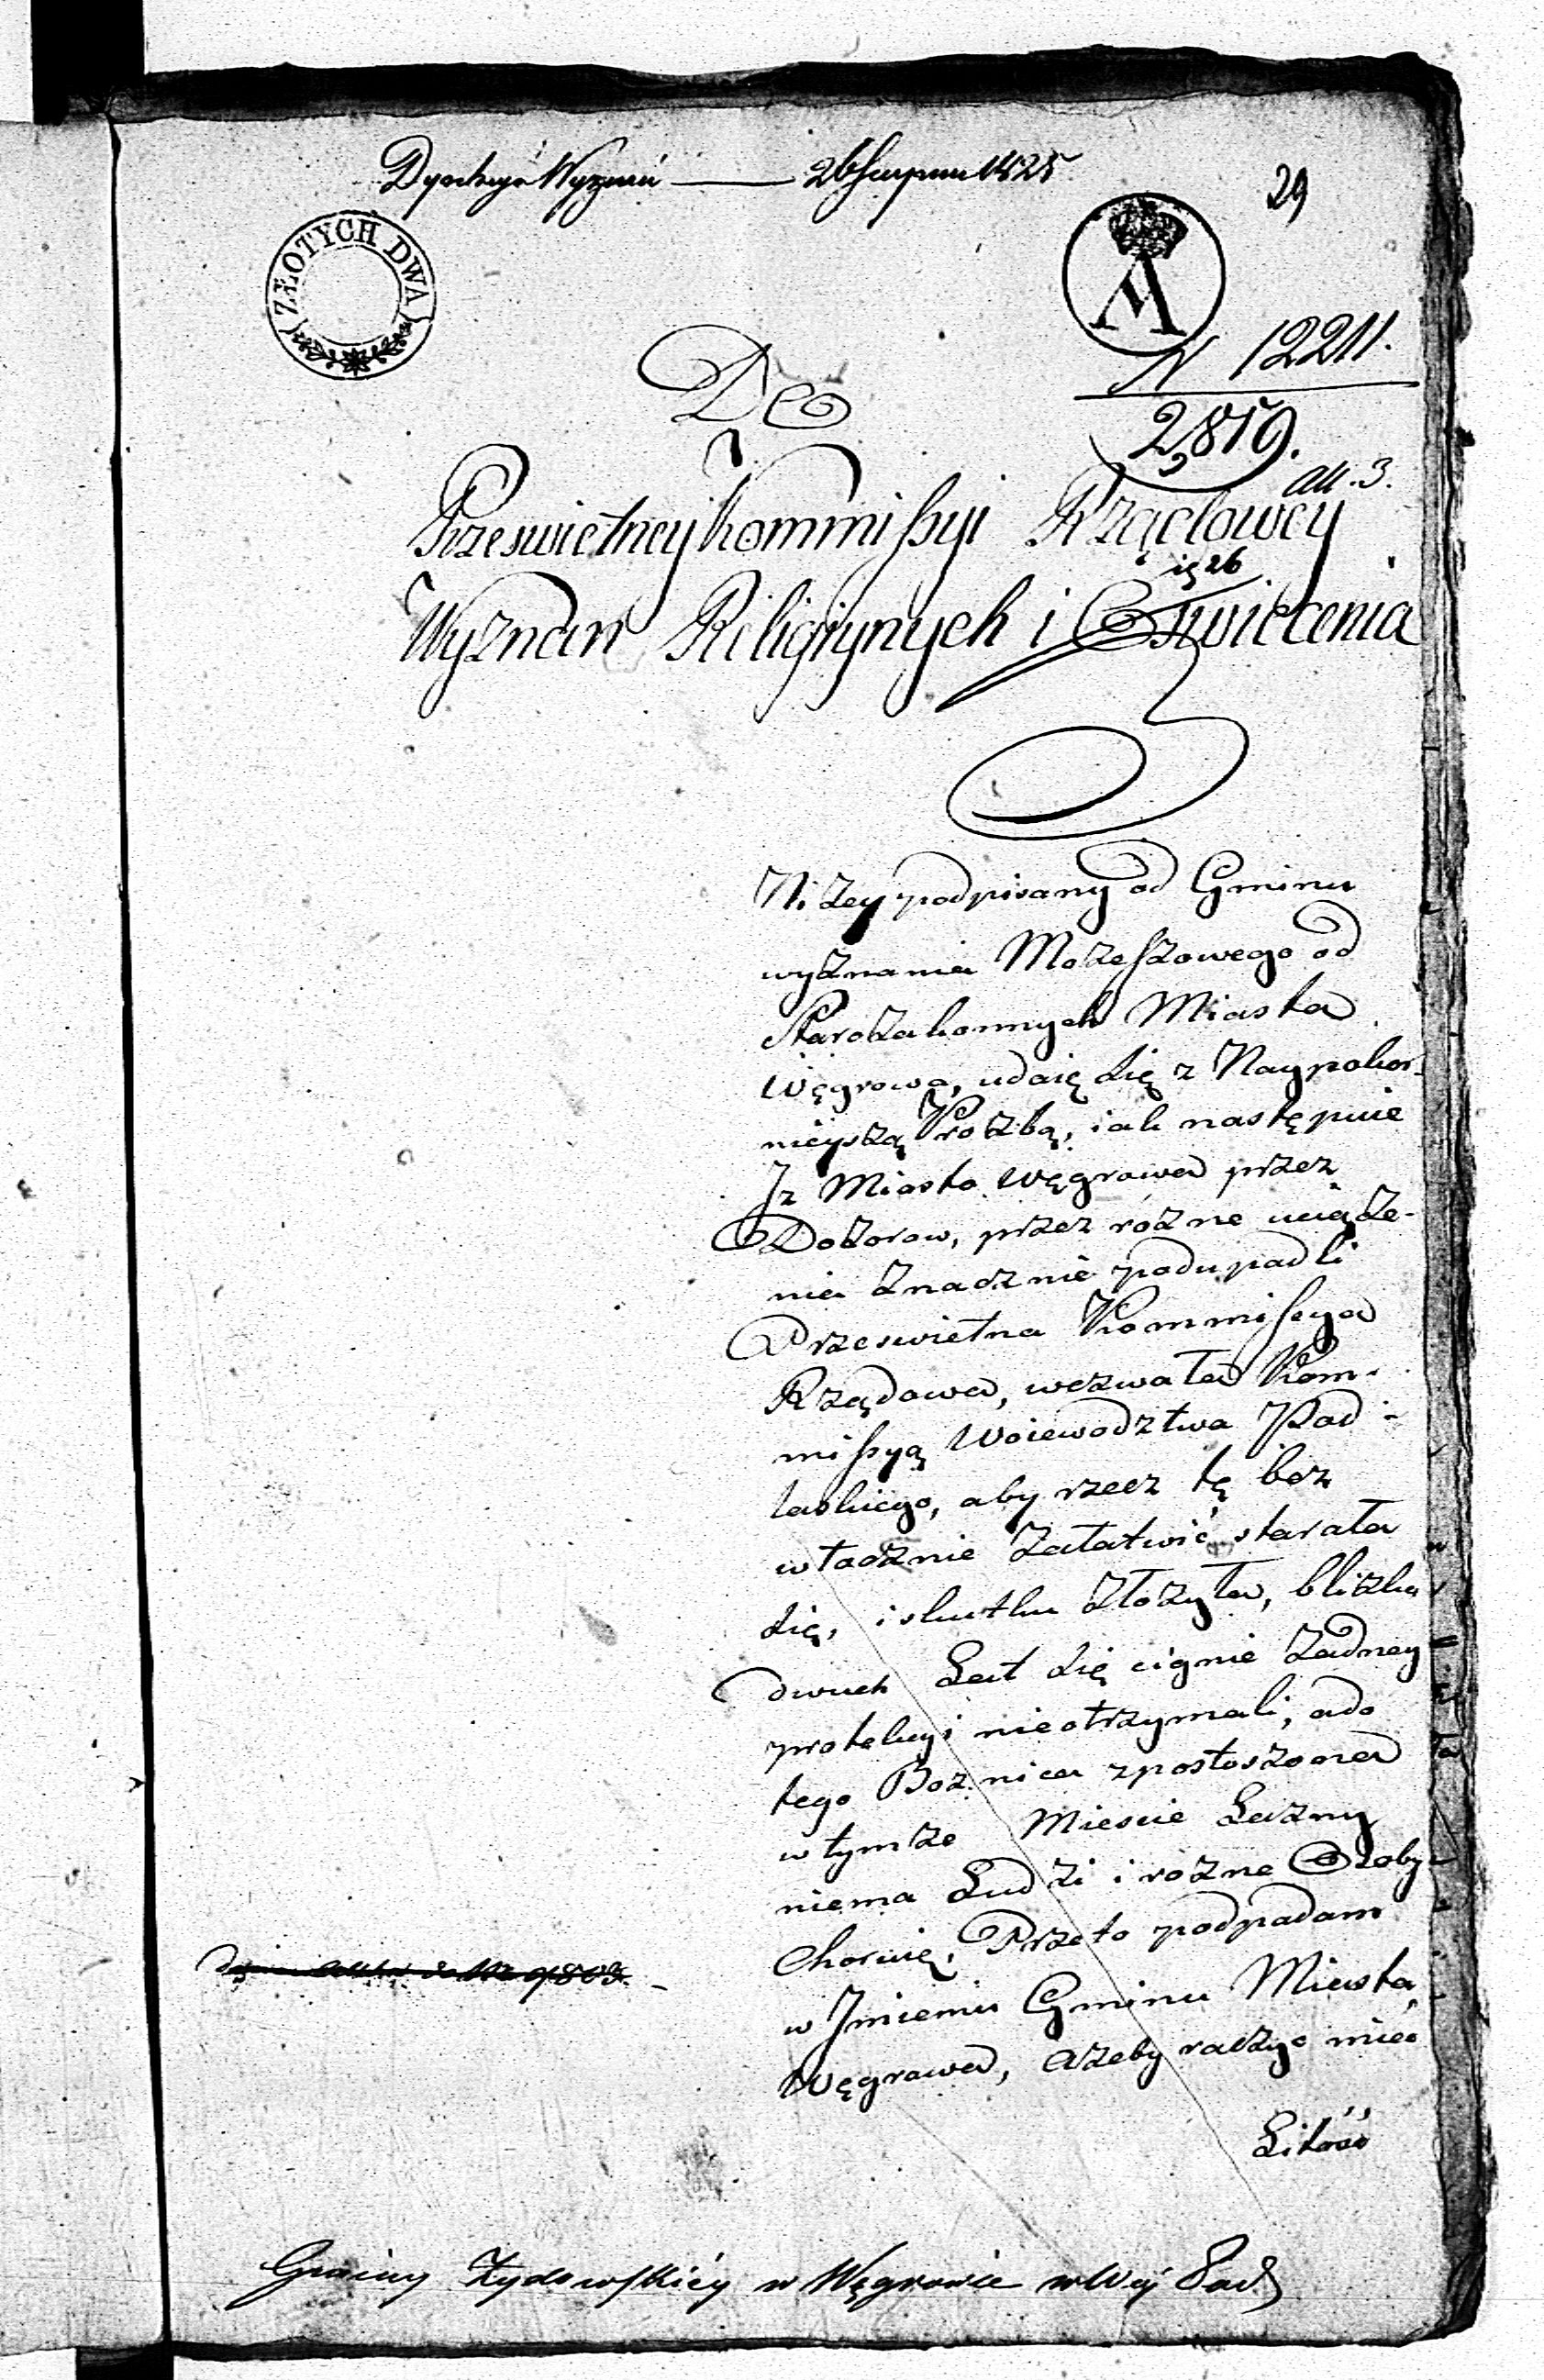 Dyrekcyi Wyznań — 26 Sierpnia 1825
29
ZŁOTYCH DWA
N 12211.
2819.
Do
all. 3.
Przeswietney Kommissyi Rządowey
Wyznań Religiynych i Oswiecenia
Niżey podpisany od Gminu
wyznania Mozeszowego od
Starozakonnych Miasta
Węgrowa, udaię się z Naypokor-
nieyszą Prozbą, iak następuie
Iz Miasta Węgrowa przez
Dozorow, przez rozne uciąże-
nia znacznie podupadli
Przeswietna Kommissya
Rządowa, wezwała Kom-
missyą Woiewodztwa Pod-
laskiego, aby rzecz tę bez
włocznie załatwić starała
się, i skutku złożyła, blizko
dwuch Lat się cignie żadney
protekcyi nieotrzymali, a do
tego Boznica zpostoszona
w tymże Miescie Łazny
niema Ludzi i rozne Osoby
Choruię, Przeto podpadam
w Imieniu Gminu Miasta
Węgrowa, ażeby raczyc mieć
Litość
Gminy Żydowskiéy w Węgrowie w Wój Pod